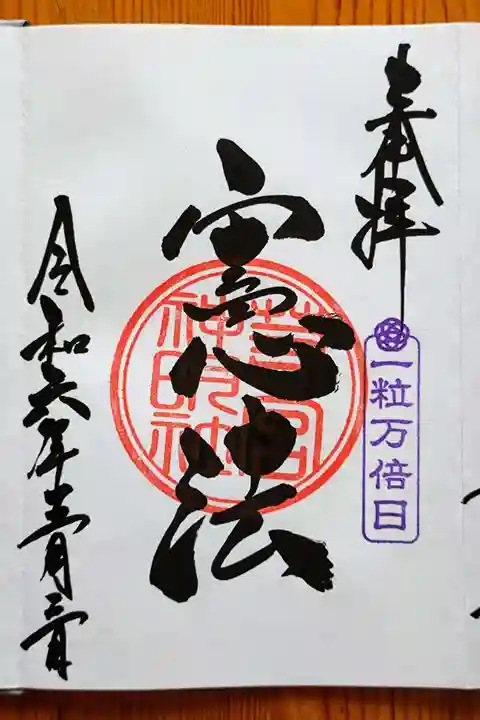 奉拝
一粒万倍日
憲法
神明社
令和六年五月三日